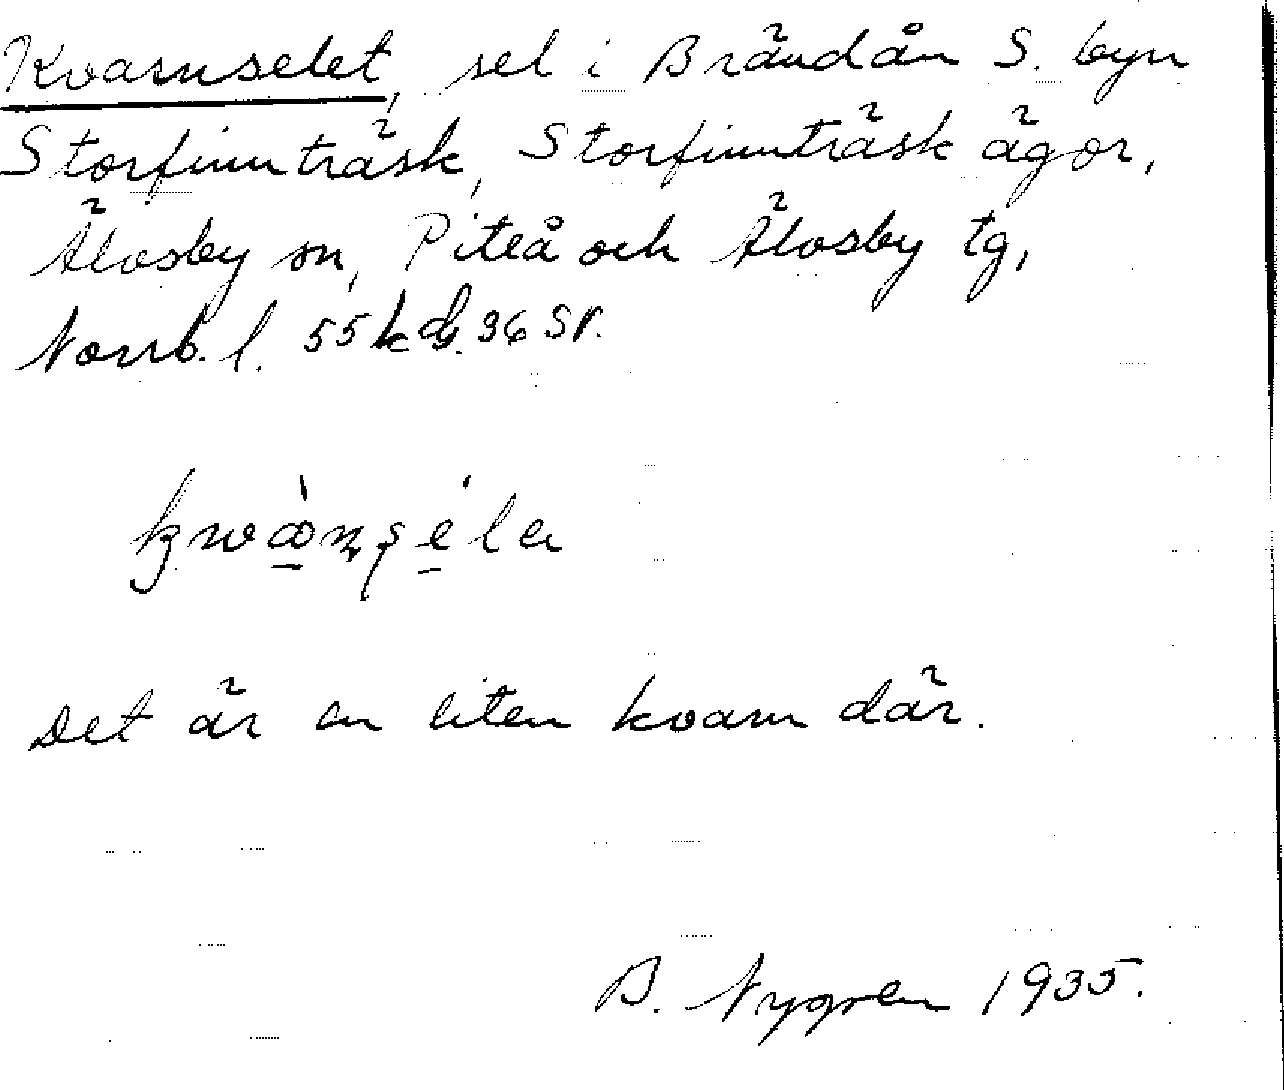 Kvarnselet, sel i Brändån S. byn
Storfinnträsk, Storfinnträsk ägor,
Älvsby sn, Piteå och Älvsby tg,
Norrb. l. 55 kd. 36 SV.
Det är en liten kvarn där.
B. Nygren 1935.